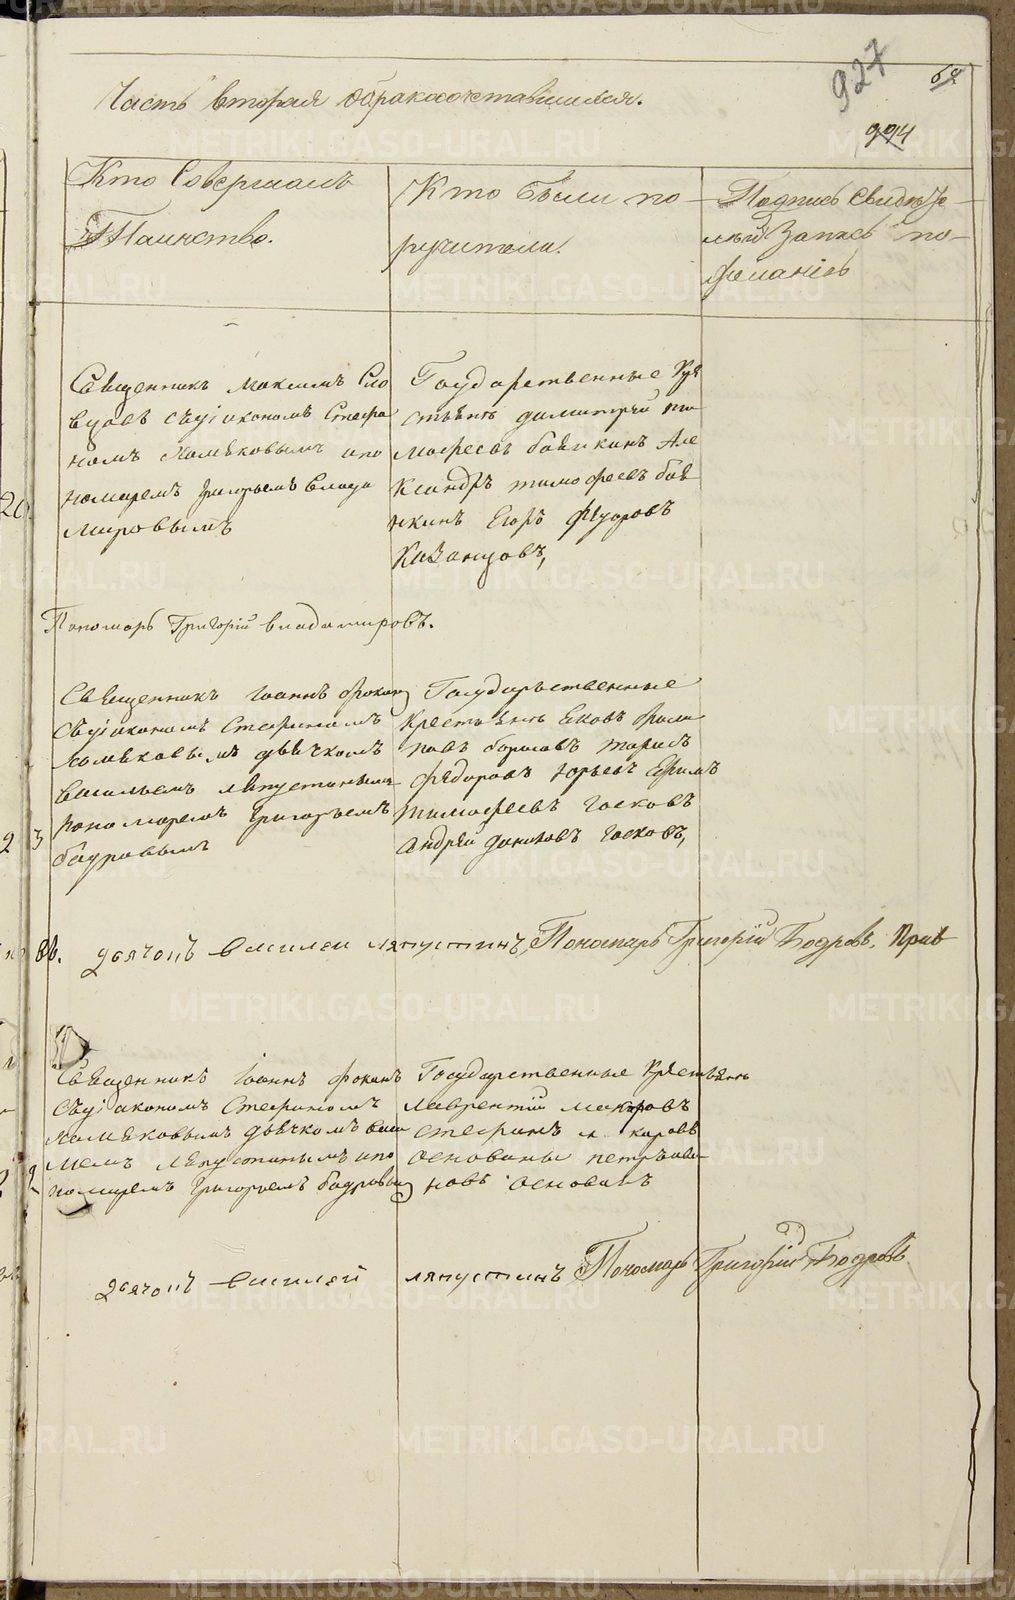 927
994
Часть вторая обракосочетавшихся.
Кто Совершалъ
Таинство.
Кто были по
ручители.
Подпись свидѣте
лей Запись по
желанію
Священникъ Максимъ Сло
вцовъ съ діакономъ Стефа
номъ Хомяковымъ и по
номаремъ Григорьемъ Влади
мировымъ
Государственные Кре
стьяне димитрей ти
мофеевъ бабикинъ Але
Ксандръ тимофеевъ баб
икинъ Егоръ Фёдоровъ
Казанцовъ,
20
Пономарь Григорій владимировъ.
Священникъ Іоаннъ
съ діакономъ Стефаномъ
Хомяковымъ дьячкомъ
Васильемъ ляпустинымъ
пономаремъ Григорьемъ
бодровымъ
Государственные
Крестьяне Яковъ
борисовъ
Федоровъ Юрьевъ Ефимъ
тимофеевъ Госковъ
андрей Госковъ,
2 3
дьячокъ василеи ляпустинъ, Пономарь Григорій Бодровъ.
Священникъ Іоаннъ
съ діакономъ Стефаномъ
Хомяковымъ дьячкомъ васи
льемъ ляпустинымъ и по
номаремъ Григорьемъ бодровым
Государственные Крестьяне
лаврентій макаровъ
стефанъ макаровъ
основины петръ ива
новъ основинъ
дьячокъ василей ляпустинъ Пономарь Григорій Бодровъ
METRIKI.GASO-URAL.RU